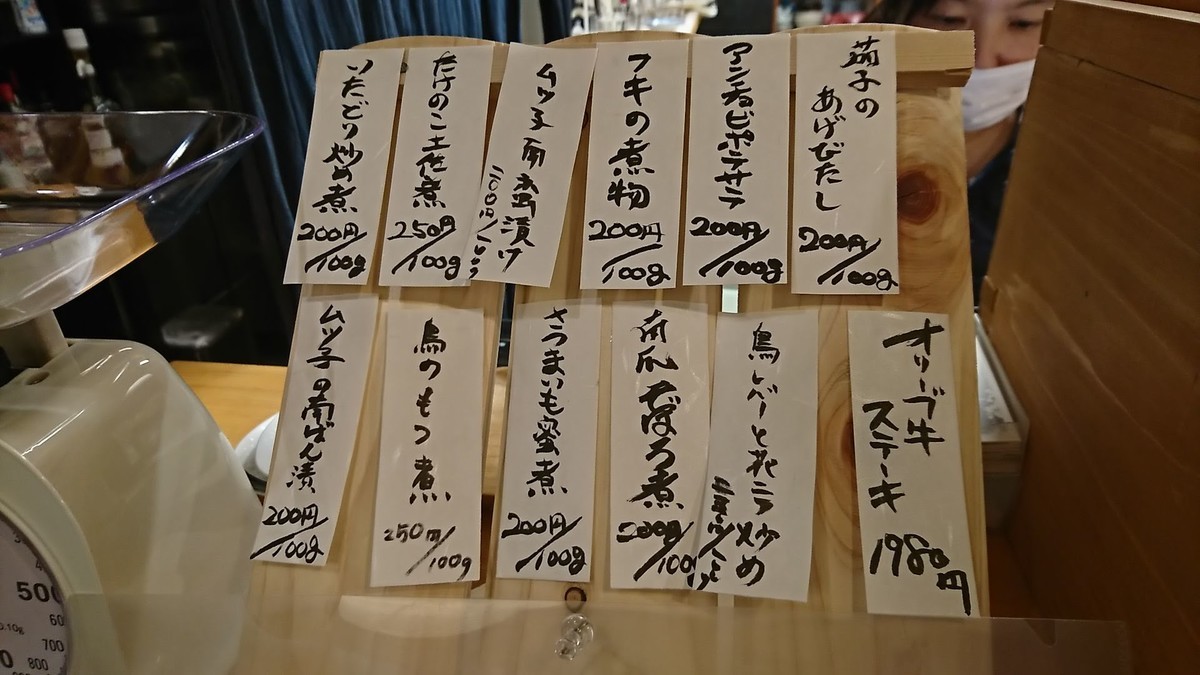 茄子の
あげびたし
200円/100g
アンチョビポテサラ
200円/100g
フキの煮物
200円/100g
ムツ子南蛮漬け
たけのこ土佐煮
250円/100g
いたどり炒め煮
200円/100g
オリーブ牛
ステーキ
1980円
鳥レバーと花ニラ
炒め
南瓜そぼろ煮
200円/100
さつまいも蜜煮
200円/100g
鳥のもつ煮
250円/100g
ムツ子の南ばん漬
200円/100g
500
60
700
800